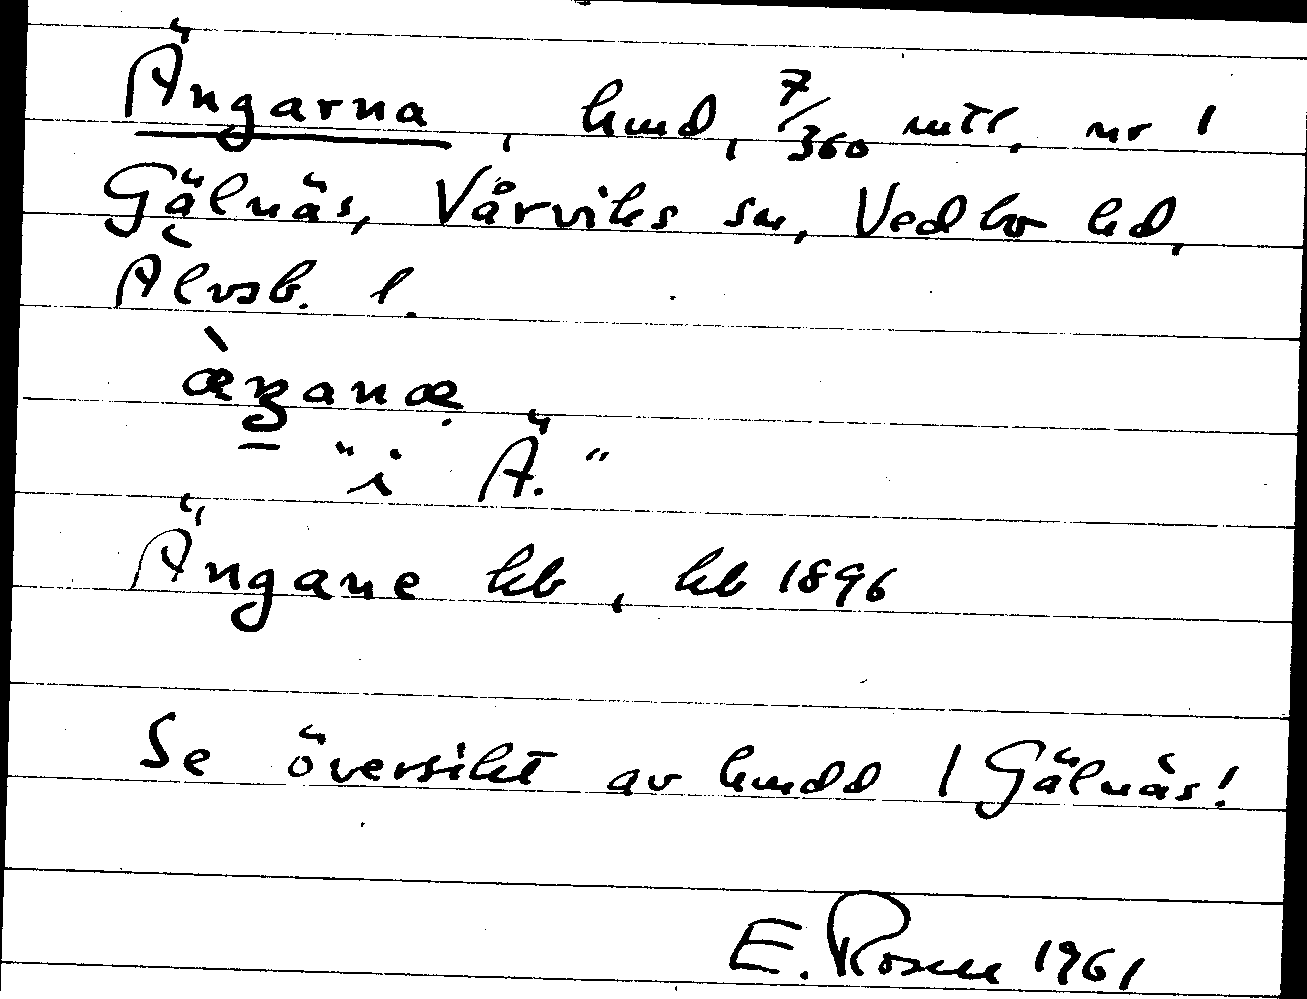 Ängarna, hmd, 7/360 mtl. nr 1
Gälnäs, Vårviks sn, Vedbo hd,
Älvsb. l.
"i Ä."
Ängane kb, kb 1896
Se översikt av hmdd 1 Gälnäs!
E. Rosen 1961